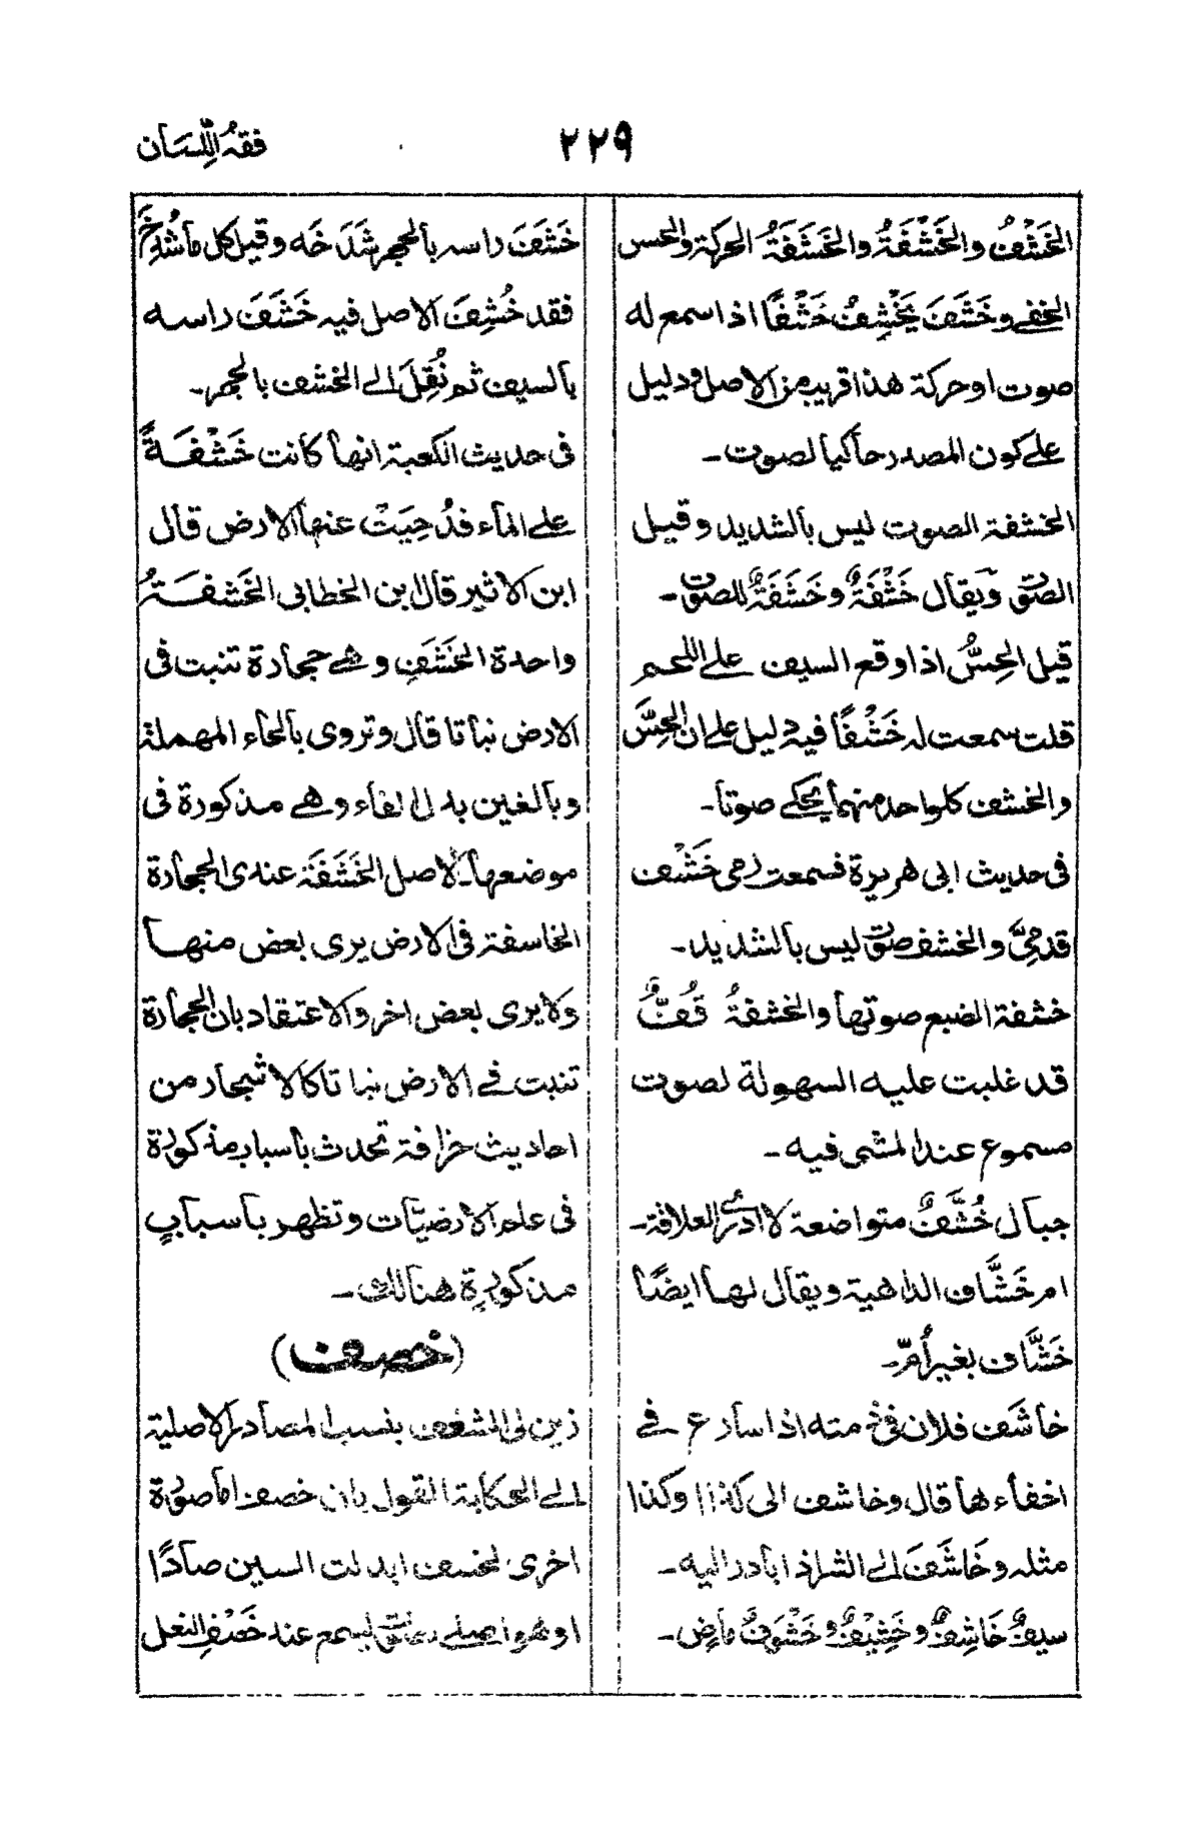 فقہُ اللِّسَان
٢٢٩
الخَشْفُ والخَشْفَةُ والخَشَفَةُ الحركة والحس
الخفے وخَشَفَ يَخْشِفُ خَشْفًا اذا سمع له
صوت او حركة هذا قريب من الاصل ودليل
علے كون المصدر حاكيا لصوت۔
الخشفة الصوت ليس بالشديد وقيل
الصوت ويقال خَشْفَةٌ وخَشَفَةٌ للصوت۔
قيل الحِسُّ اذا وقع السيف علے اللحم
قلت سمعت له خَشْفًا فيه دليل علے ان الحِسَّ
والخشف كلواحد منهما يحكے صوتا۔
فى حديث ابى هريرة فسمعت امى خَشْف
قدمىَّ والخشف صوت ليس بالشديد۔
خشفة الضبع صوتها والخشفةُ قُفٌّ
قد غلبت عليه السهولة لصوت
مسموع عند المشى فيه۔
جبال خُشَّفٌ متواضعة لا ادرى العلاقة۔
ام خَشَّاف الداهية ويقال لها ايضًا
خَشَّاف بغير اُمّ۔
خاشَف فلان فى ذمته اذا سارع فے
اخفاءها قال وخاشف الى كذا وكذا
مثله وخَاشَفَ الے الشر اذا بادر اليه۔
سيفٌ خَاشِفٌ وخَشِيْفٌ وخَشُوفٌ ماضٍ۔
خَشَفَ راسه بالحجر شَدَخَه وقيل كل ما شُدِخَ
فقد خُشِفَ الاصل فيه خَشَفَ راسه
بالسيف ثم نُقِلَ الے الخشف بالحجر۔
فى حديث الكعبة انها كانت خَشْفَةً
علے الماء فدُحِيَتْ عنها الارض قال
ابن الاثير قال ابن الخطابى الخَشَفَةُ
واحدة الخَشَفِ وهے حجارة تنبت فى
الارض نباتا قال وتروى بالحاء المهملة
وبالغين بدل الفاء وهے مذكورة فى
موضعها۔ الاصل الخَشَفَة عندى الحجارة
الخاسفة فى الارض يرى بعض منها
ولا يرى بعض اخر والاعتقاد بان الحجارة
تنبت فے الارض نباتا كالاشجار من
احاديث خرافة تحدث باسباب مذكورة
فى علم الارضيّات وتظهر باسبابٍ
مذكورةٍ هنالك۔
(خصف)
زين لى المشغف بنسب المصادر الاصلية
الے الحكاية القول بان خصف اما صورة
اخرى لخسف ابدلت السين صادًا
او هو اصلے لصوت يسمع عند خَصْفِ النعل